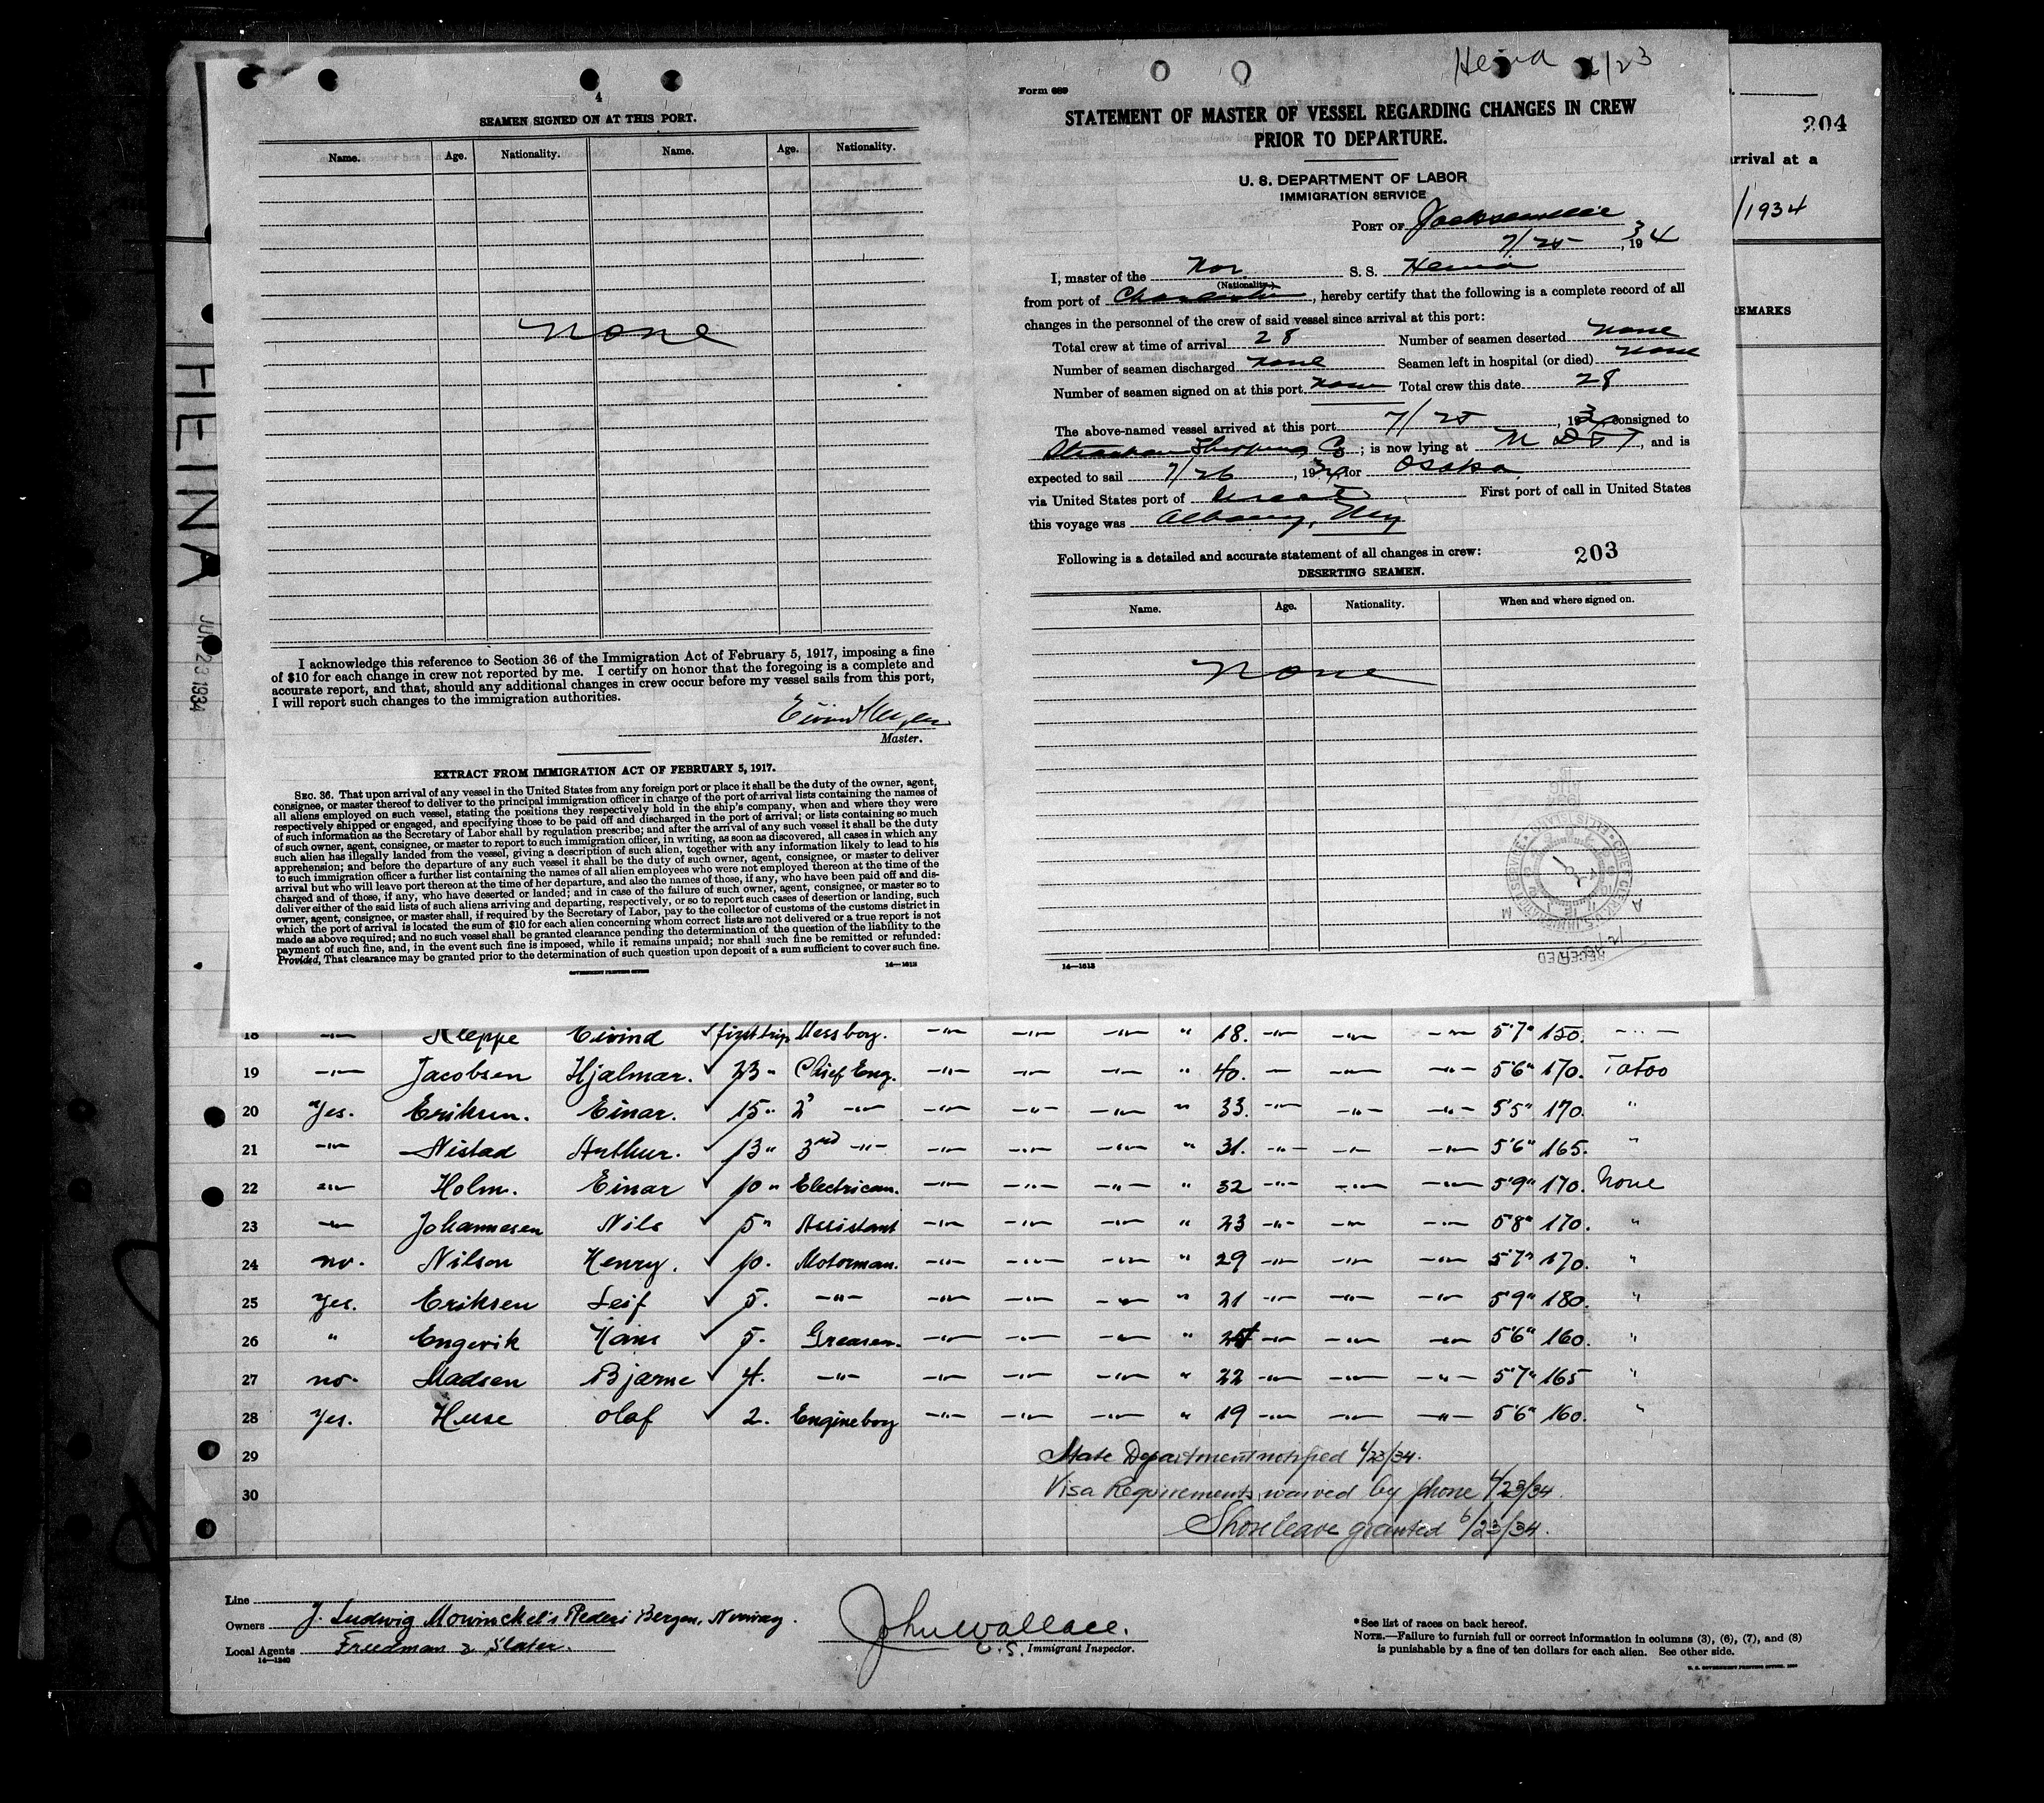 4
SEAMEN SIGNED ON AT THIS PORT.
Name. Age. Nationality. Name. Age. Nationality.
none
I acknowledge this reference to Section 36 of the Immigration Act of February 5, 1917, imposing a fine
of $10 for each change in crew not reported by me. I certify on honor that the foregoing is a complete and
accurate report, and that, should any additional changes in crew occur before my vessel sails from this port,
I will report such changes to the immigration authorities.
Master.
EXTRACT FROM IMMIGRATION ACT OF FEBRUARY 5, 1917.
SEC. 36. That upon arrival of any vessel in the United States from any foreign port or place it shall be the duty of the owner, agent,
consignee, or master thereof to deliver to the principal immigration officer in charge of the port of arrival lists containing the names of
all aliens employed on such vessel, stating the positions they respectively hold in the ship's company, when and where they were
respectively shipped or engaged, and specifying those to be paid off and discharged in the port of arrival; or lists containing so much
of such information as the Secretary of Labor shall by regulation prescribe; and after the arrival of any such vessel it shall be the duty
of such owner, agent, consignee, or master to report to such immigration officer, in writing, as soon as discovered, all cases in which any
such alien has illegally landed from the vessel, giving a description of such alien, together with any information likely to lead to his
apprehension; and before the departure of any such vessel it shall be the duty of such owner, agent, consignee, or master to deliver
to such immigration officer a further list containing the names of all alien employees who were not employed thereon at the time of the
arrival but who will leave port thereon at the time of her departure, and also the names of those, if any, who have been paid off and dis-
charged and of those, if any, who have deserted or landed; and in case of the failure of such owner, agent, consignee, or master so to
deliver either of the said lists of such aliens arriving and departing, respectively, or so to report such cases of desertion or landing, such
owner, agent, consignee, or master shall, if required by the Secretary of Labor, pay to the collector of customs of the customs district in
which the port of arrival is located the sum of $10 for each alien concerning whom correct lists are not delivered or a true report is not
made as above required; and no such vessel shall be granted clearance pending the determination of the question of the liability to the
payment of such fine, and, in the event such fine is imposed, while it remains unpaid; nor shall such fine be remitted or refunded:
Provided, That clearance may be granted prior to the determination of such question upon deposit of a sum sufficient to cover such fine.
GOVERNMENT PRINTING OFFICE 14—1613
Heina 6/23
Form 689
STATEMENT OF MASTER OF VESSEL REGARDING CHANGES IN CREW
PRIOR TO DEPARTURE.
U. S. DEPARTMENT OF LABOR
IMMIGRATION SERVICE
PORT OF Jacksonville
7/25, 1934
I, master of the Nor. S. S. Heina
(Nationality.)
from port of Charleston, hereby certify that the following is a complete record of all
changes in the personnel of the crew of said vessel since arrival at this port:
Total crew at time of arrival 28 Number of seamen deserted none
Number of seamen discharged none Seamen left in hospital (or died) none
Number of seamen signed on at this port none Total crew this date 28
The above-named vessel arrived at this port 7/25, 1934 consigned to
Strachan Shipping Co; is now lying at M D T, and is
expected to sail 7/26, 1934 for Osaka
via United States port of First port of call in United States
this voyage was Albany, N.Y.
Following is a detailed and accurate statement of all changes in crew: 203
DESERTING SEAMEN.
Name. Age. Nationality. When and where signed on.
none
RECEIVED
14—1613
204
arrival at a
/1934
REMARKS
HEINA
JUN 23 1934
18 —"— Kleppe Eivind ✓ first trip Mess boy. —"— —"— —"— " 18. —"— —"— —"— 5'7" 150. —"—
19 —"— Jacobsen Hjalmar. ✓ 23 " Chief Eng. —"— —"— —"— " 40. — —"— —"— 5'6" 170. Tatoo
20 Yes. Eriksen. Einar. ✓ 15 " 2' —"— —"— —"— —"— " 33. —"— —"— —"— 5'5" 170. "
21 —"— Nistad Arthur. ✓ 13 " 3rd —"— —"— —"— —"— " 31. —"— —"— —"— 5'6" 165. "
22 —"— Holm. Einar ✓ 10 " Electrican. —"— —"— —"— " 32 —"— —"— —"— 5'9" 170. None
23 —"— Johannesen Nils ✓ 5 " Assistant —"— —"— —"— " 23 —"— —"— —"— 5'8" 170. "
24 no. Nilson Henry. ✓ 10. Motorman. —"— —"— —"— " 29 —"— —"— —"— 5'7" 170. "
25 Yes. Eriksen Leif ✓ 5. —"— —"— —"— —"— " 21 —"— —"— —"— 5'9" 180. "
26 " Engevik Hans ✓ 5. Greaser. —"— —"— —"— " —"— —"— —"— 5'6" 160. "
27 no. Madsen Bjarne ✓ 4. —"— —"— —"— —"— " 22 —"— —"— —"— 5'7" 165 "
28 Yes. Huse Olaf ✓ 2. Engineboy —"— —"— —"— " 19 —"— —"— —"— 5'6" 160. "
29 State Department notified 6/23/34.
30 Visa Requirements waived by phone 6/23/34.
Shore leave granted 6/23/34.
Line
Owners J. Ludwig Mowinckel's Rederi Bergen, Norway.
Local Agents Freedman & Slater.
14—1240
John Wallace.
U.S. Immigrant Inspector.
*See list of races on back hereof.
NOTE.—Failure to furnish full or correct information in columns (3), (6), (7), and (8)
is punishable by a fine of ten dollars for each alien. See other side.
U. S. GOVERNMENT PRINTING OFFICE